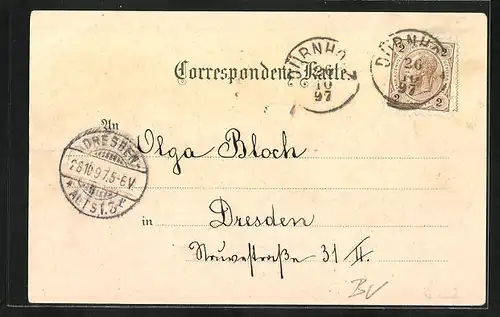 Correspondenz-Karte
DÜRNHO
26
10
97
DÜRNHO
26
10
97
2 2
2 2
An
Olga Bloch
DRESDEN-
28.10.97.5-6V.
* ALTST. 3
in
Dresden
31 II.
BV